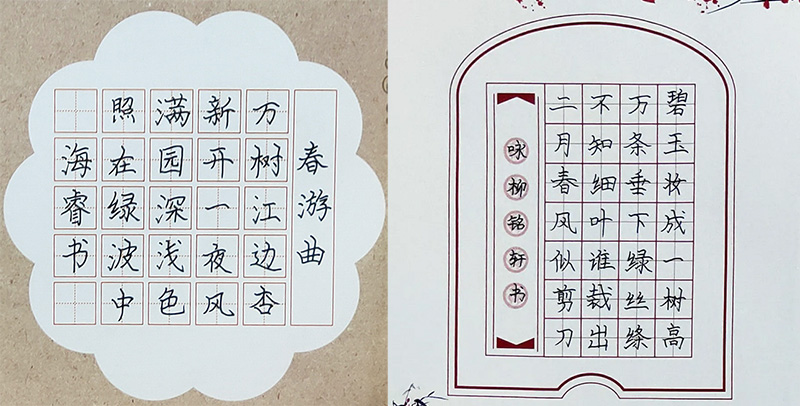 春游曲
万树江边杏
新开一夜风
满园深浅色
照在绿波中
海睿书
碧玉妆成一树高
万条垂下绿丝绦
不知细叶谁裁出
二月春风似剪刀
咏柳铭轩书